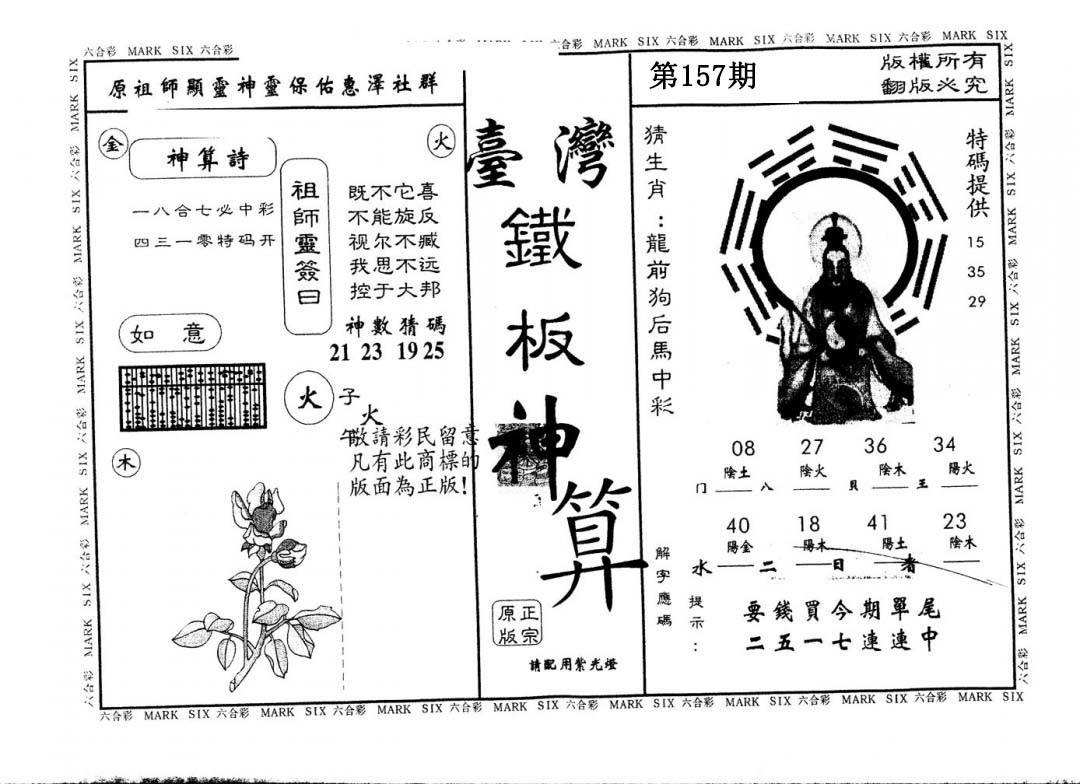 六合彩 MARK SIX 六合彩
合彩 MARK SIX 六合彩 MARK SIX 六合彩 MARK SIX 六合彩 MARK SIX
原祖師顯靈神靈保佑惠澤社群
第157期
版權所有
翻版必究
金
火
神算詩
一八合七必中彩
四三一零特码开
祖師靈簽曰
既不它喜
不能旋反
视尔不臧
我思不远
控于大邦
神數猜碼
21 23 19 25
如意
火
子
火
午
木
敬請彩民留意
凡有此商標的
版面為正版!
臺灣
鐵
板
神
算
正宗
原版
請配用紫光燈
猜生肖:龍前狗后馬中彩
特碼提供
15
35
29
08 27 36 34
陰土 陰火 陰木 陽火
门 八 貝 王
40 18 41 23
陽金 陽木 陽土 陰木
水 二 日 者
解字應碼
提示:
要錢買今期單尾
二五一七連連中
六合彩 MARK SIX 六合彩 MARK SIX 六合彩 MARK SIX 六合彩 MARK SIX 六合彩 MARK SIX 六合彩 MARK SIX 六合彩 MARK SIX 六合彩 MARK SIX